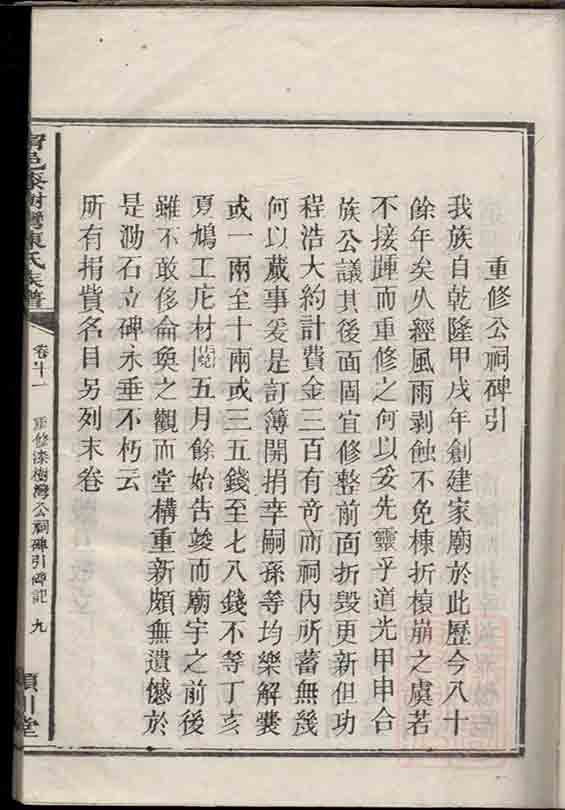 重修公祠碑引
我族自乾隆甲戌年創建家廟於此歷今八十
餘年矣久經風雨剥蝕不免棟折榱崩之虞若
不接踵而重修之何以妥先靈乎道光甲申合
族公議其後面固宜修整前面折毀更新但功
程浩大約計費金三百有奇而祠內所蓄無幾
何以蕆事爰是訂簿開捐幸嗣孫等均樂解囊
或一兩至十兩或三五錢至七八錢不等丁亥
夏鳩工庀材閱五月餘始告竣而廟宇之前後
雖不敢侈侖奐之觀而堂構重新頗無遺憾於
是泐石立碑永垂不朽云
所有捐貲名目另列末卷
邑漆樹灣陳氏族譜
卷廿一 重修漆樹灣公祠碑引碑記 九
潁川堂